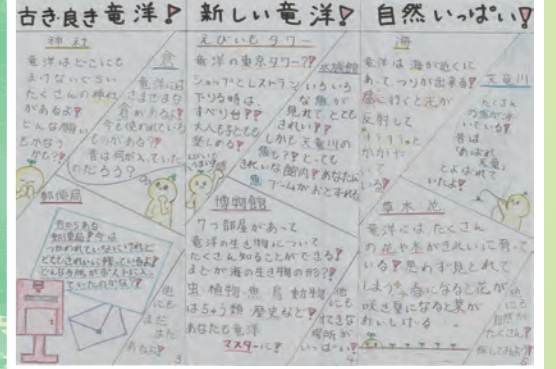 古き良き竜洋!
神社
竜洋はどこにも
まけないぐらい
たくさんの神社
があるよ!
どんな願い
もかなう
かも?
倉
竜洋には
さまざまな
倉があるよ!
今も使われている
ものがある?
昔は何が入っていた
のだろう?
郵便局
昔からある
郵便局!今は
つかわれていないけれど
とてもきれいに残っているよ!
どんな手紙がポストに入っ
ていたのかな?
他
にも
まだ
まだ
あるよ!
3
新しい竜洋!
えびいもタワー
竜洋の東京タワー??
ショップとレストラン
下りる時は、
すべり台??
大人も子どもも
楽しめる!
水族館
いろいろ
な魚が
見れてとても
きれい!?
しかも天竜川の
魚も??とっても
きれいな館内!あなたに
魚ブームがおとずれる
博物館
7つ部屋があって
竜洋の生き物について
たくさん知ることができる!
まどが海の生き物の形??
虫・植物・魚・鳥・動物
はちゅう類・歴史など!
あなたも竜洋
マスターに!
他
にも
すてきな
場所が
いっぱい!
4
自然いっぱい!
海
竜洋は海が近くに
あって、つりが出来る!
昼に行くと光が
反射して
キラキラっと
かがやいて
いる!
天竜川
たくさん
の魚が泳
いでいる!
昔は
「あばれ
天竜」
とよばれて
いたよ!
草木花
竜洋には、たくさん
の花や木がきれいに育って
いる!思わず見とれて
しまう。春になると花が
咲き夏になると葉が
おいしげる
他
にも
自然が
たくさん!
探してみよう!
5